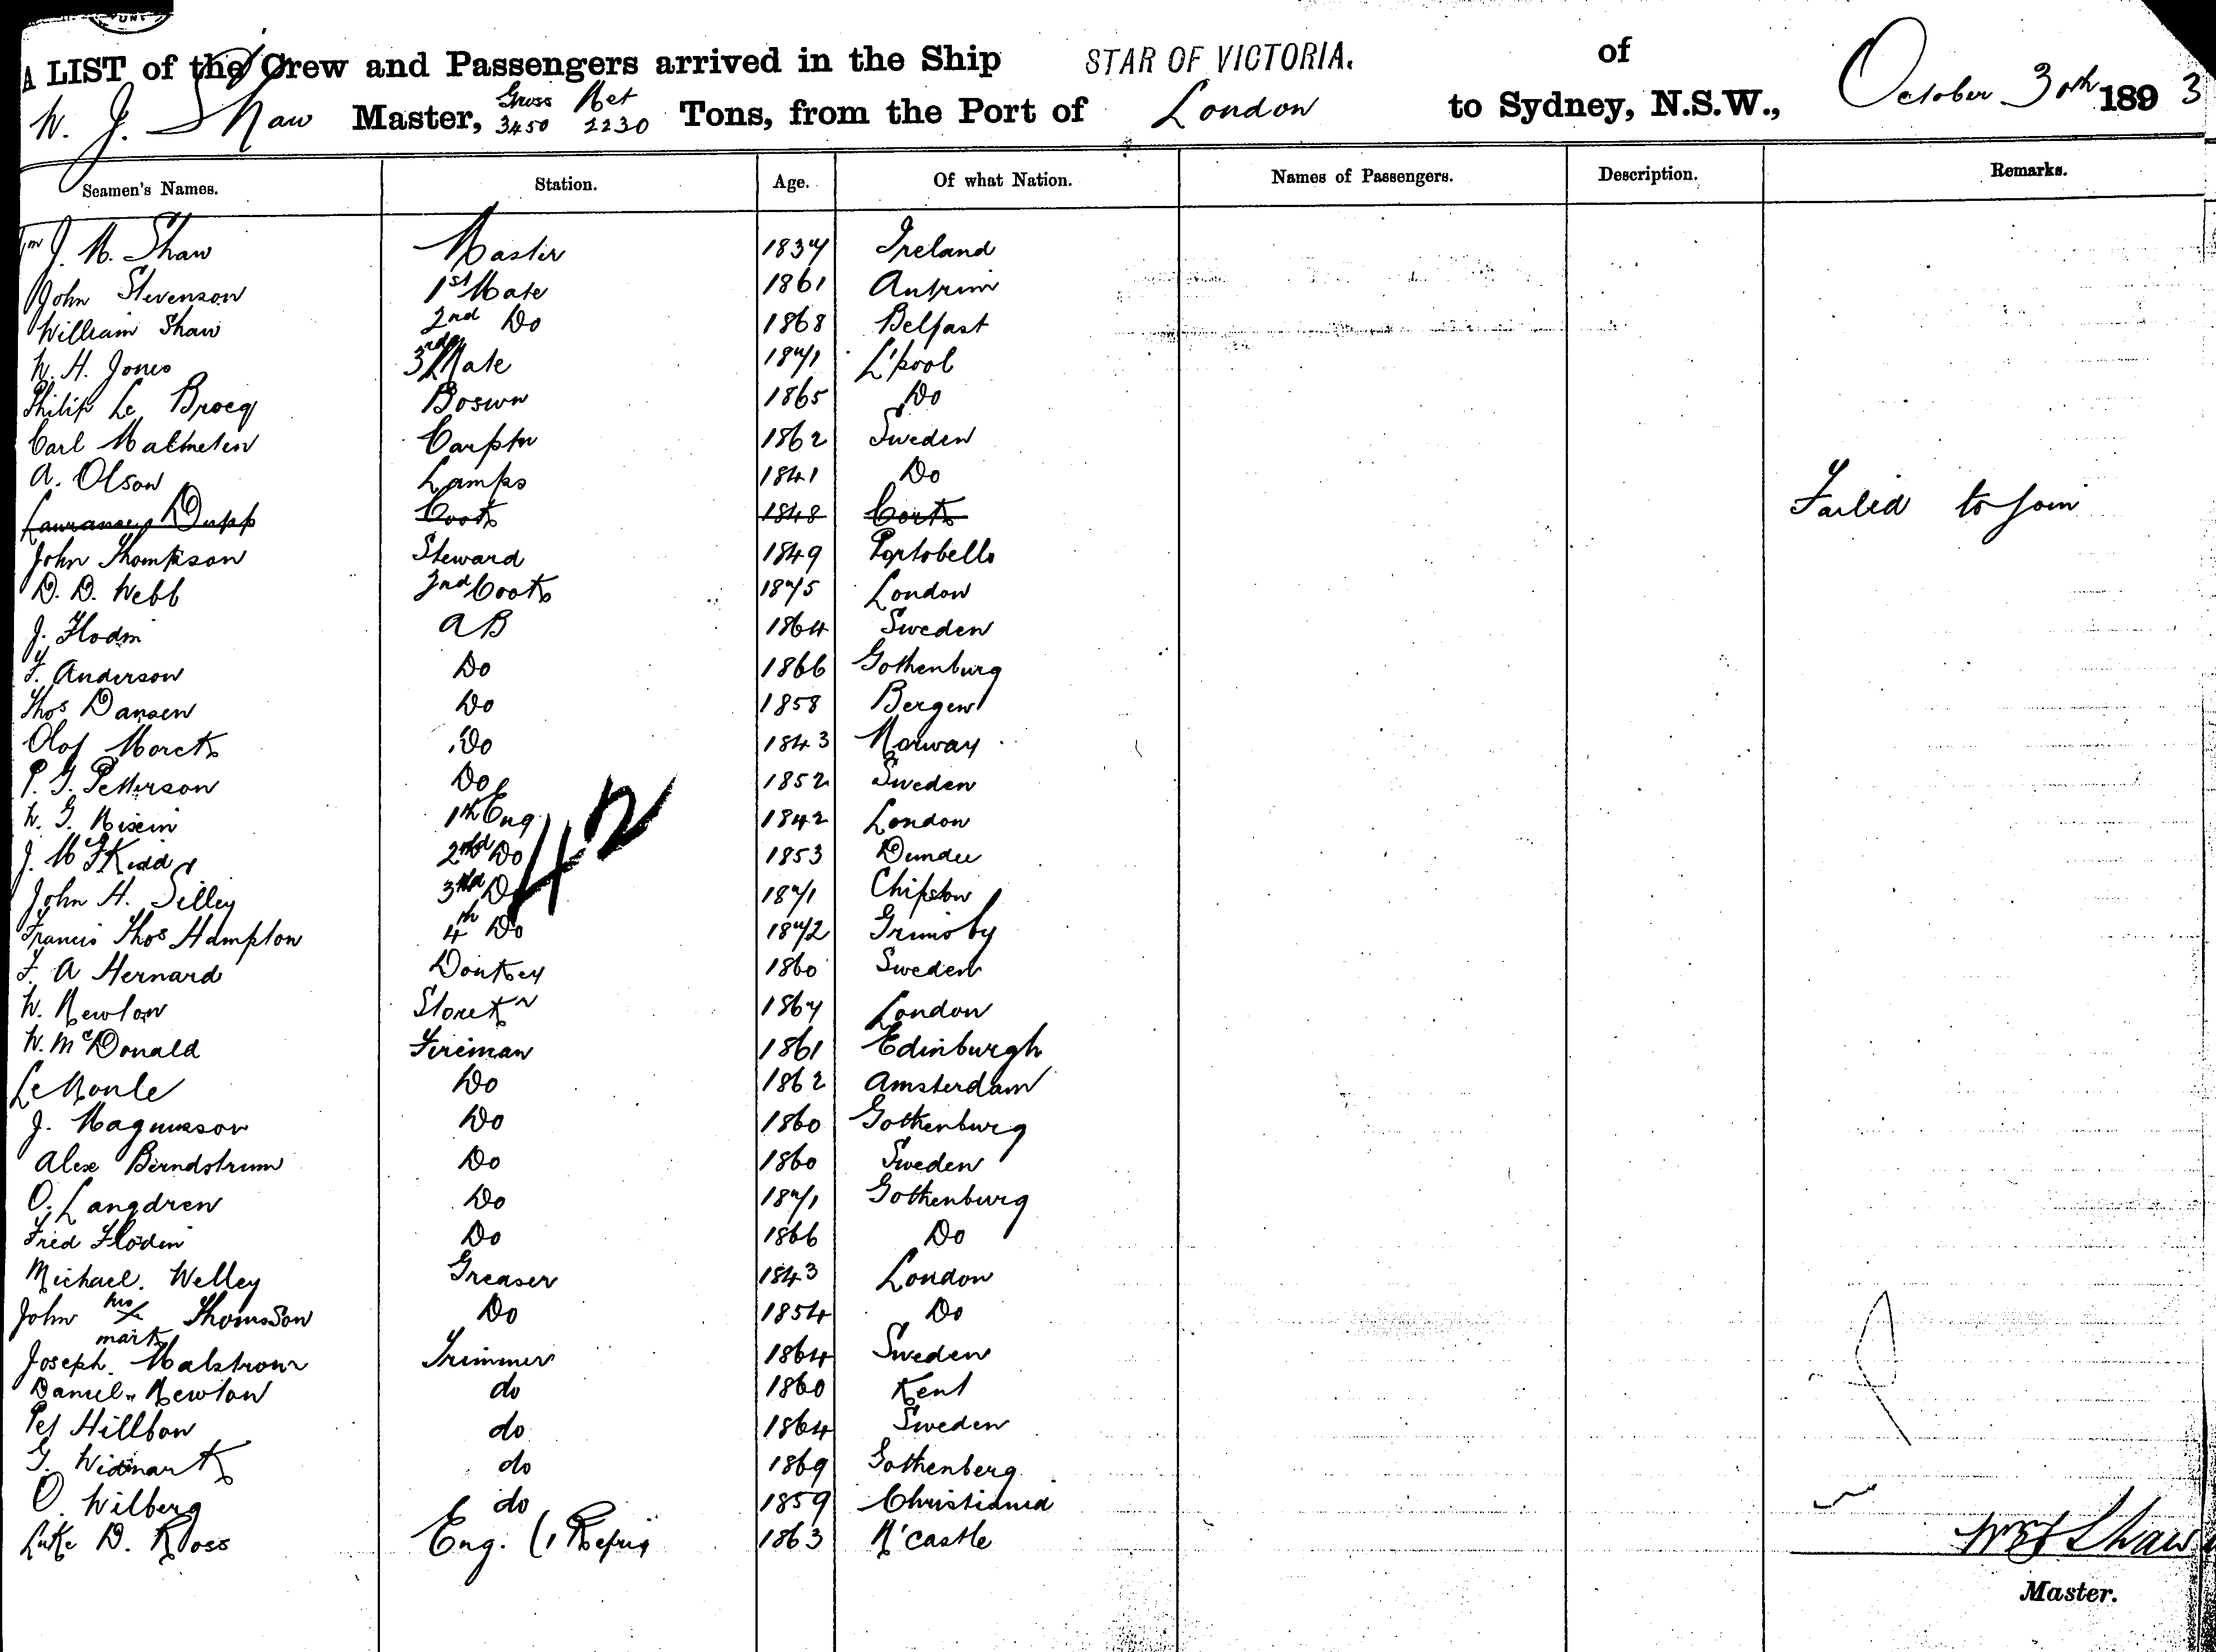 A LIST of the Crew and Passengers arrived in the Ship STAR OF VICTORIA. of
W. J. Shaw Master, Gross 3450 Net 2230 Tons, from the Port of London to Sydney, N.S.W., October 30th 1893
Seamen's Names. Station. Age. Of what Nation. Names of Passengers. Description. Remarks.
Wm J. M. Shaw Master 1837 Ireland
John Stevenson 1st Mate 1861 Antrim
William Shaw 2nd Do 1868 Belfast
W. H. Jones 3rd Mate 1871 L'pool
Philip Le Brocq Boswn 1865 Do
Carl Malmelin Carptr 1862 Sweden
A. Olson Lamps 1841 Do
Dupp Cook 1848 Cork Failed to Join
John Thompson Steward 1849 Portobello
D. D. Webb 2nd Cook 1875 London
J. Flodin AB 1864 Sweden
F. Anderson Do 1866 Gothenburg
Thos Dansen Do 1858 Bergen
Olof Morck Do 1843 Norway
P. G. Petterson Do 1852 Sweden
W. G. 1th Eng 1842 London
J. M. Kidd 2nd Do 1853 Dundee
John H. Silley 3rd Do 1871 Chipstow
42
Francis Thos Hampton 4th Do 1872 Grimsby
F. A Hernard Donkey 1860 Sweden
W. Newton Storekr 1867 London
W. McDonald Fireman 1861 Edinburgh
Do 1862 Amsterdam
J. Magnusson Do 1860 Gothenburg
Alex Berndstrum Do 1860 Sweden
O. Langdren Do 1871 Gothenburg
Fred Flodin Do 1866 Do
Michael Welley Greaser 1843 London
John his X mark Thomson Do 1854 Do
Joseph Malstrom Trimmer 1864 Sweden
Daniel Newton do 1860 Kent
Pet Hillbon do 1864 Sweden
G. Widmark do 1869 Gothenberg
O. Wilberg do 1859 Christiania
Luke D. Ross Eng. (, Refrig 1863 N'castle
Wm J Shaw
Master.